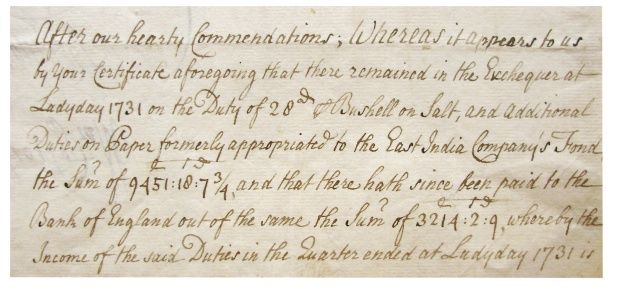 After our hearty Commendations; Whereas it appears to us
by Your Certificate aforegoing that there remained in the Exchequer at
Ladyday 1731 on the Duty of 28d ℔ Bushell on Salt, and Additional
Duties on Paper formerly appropriated to the East India Company's Fond,
the Sum̄ of 9451:18:7¾, and that there hath since been paid to the
Bank of England out of the same the Sum̄ of 3214:2:9, whereby the
Income of the said Duties in the Quarter ended at Ladyday 1731 is